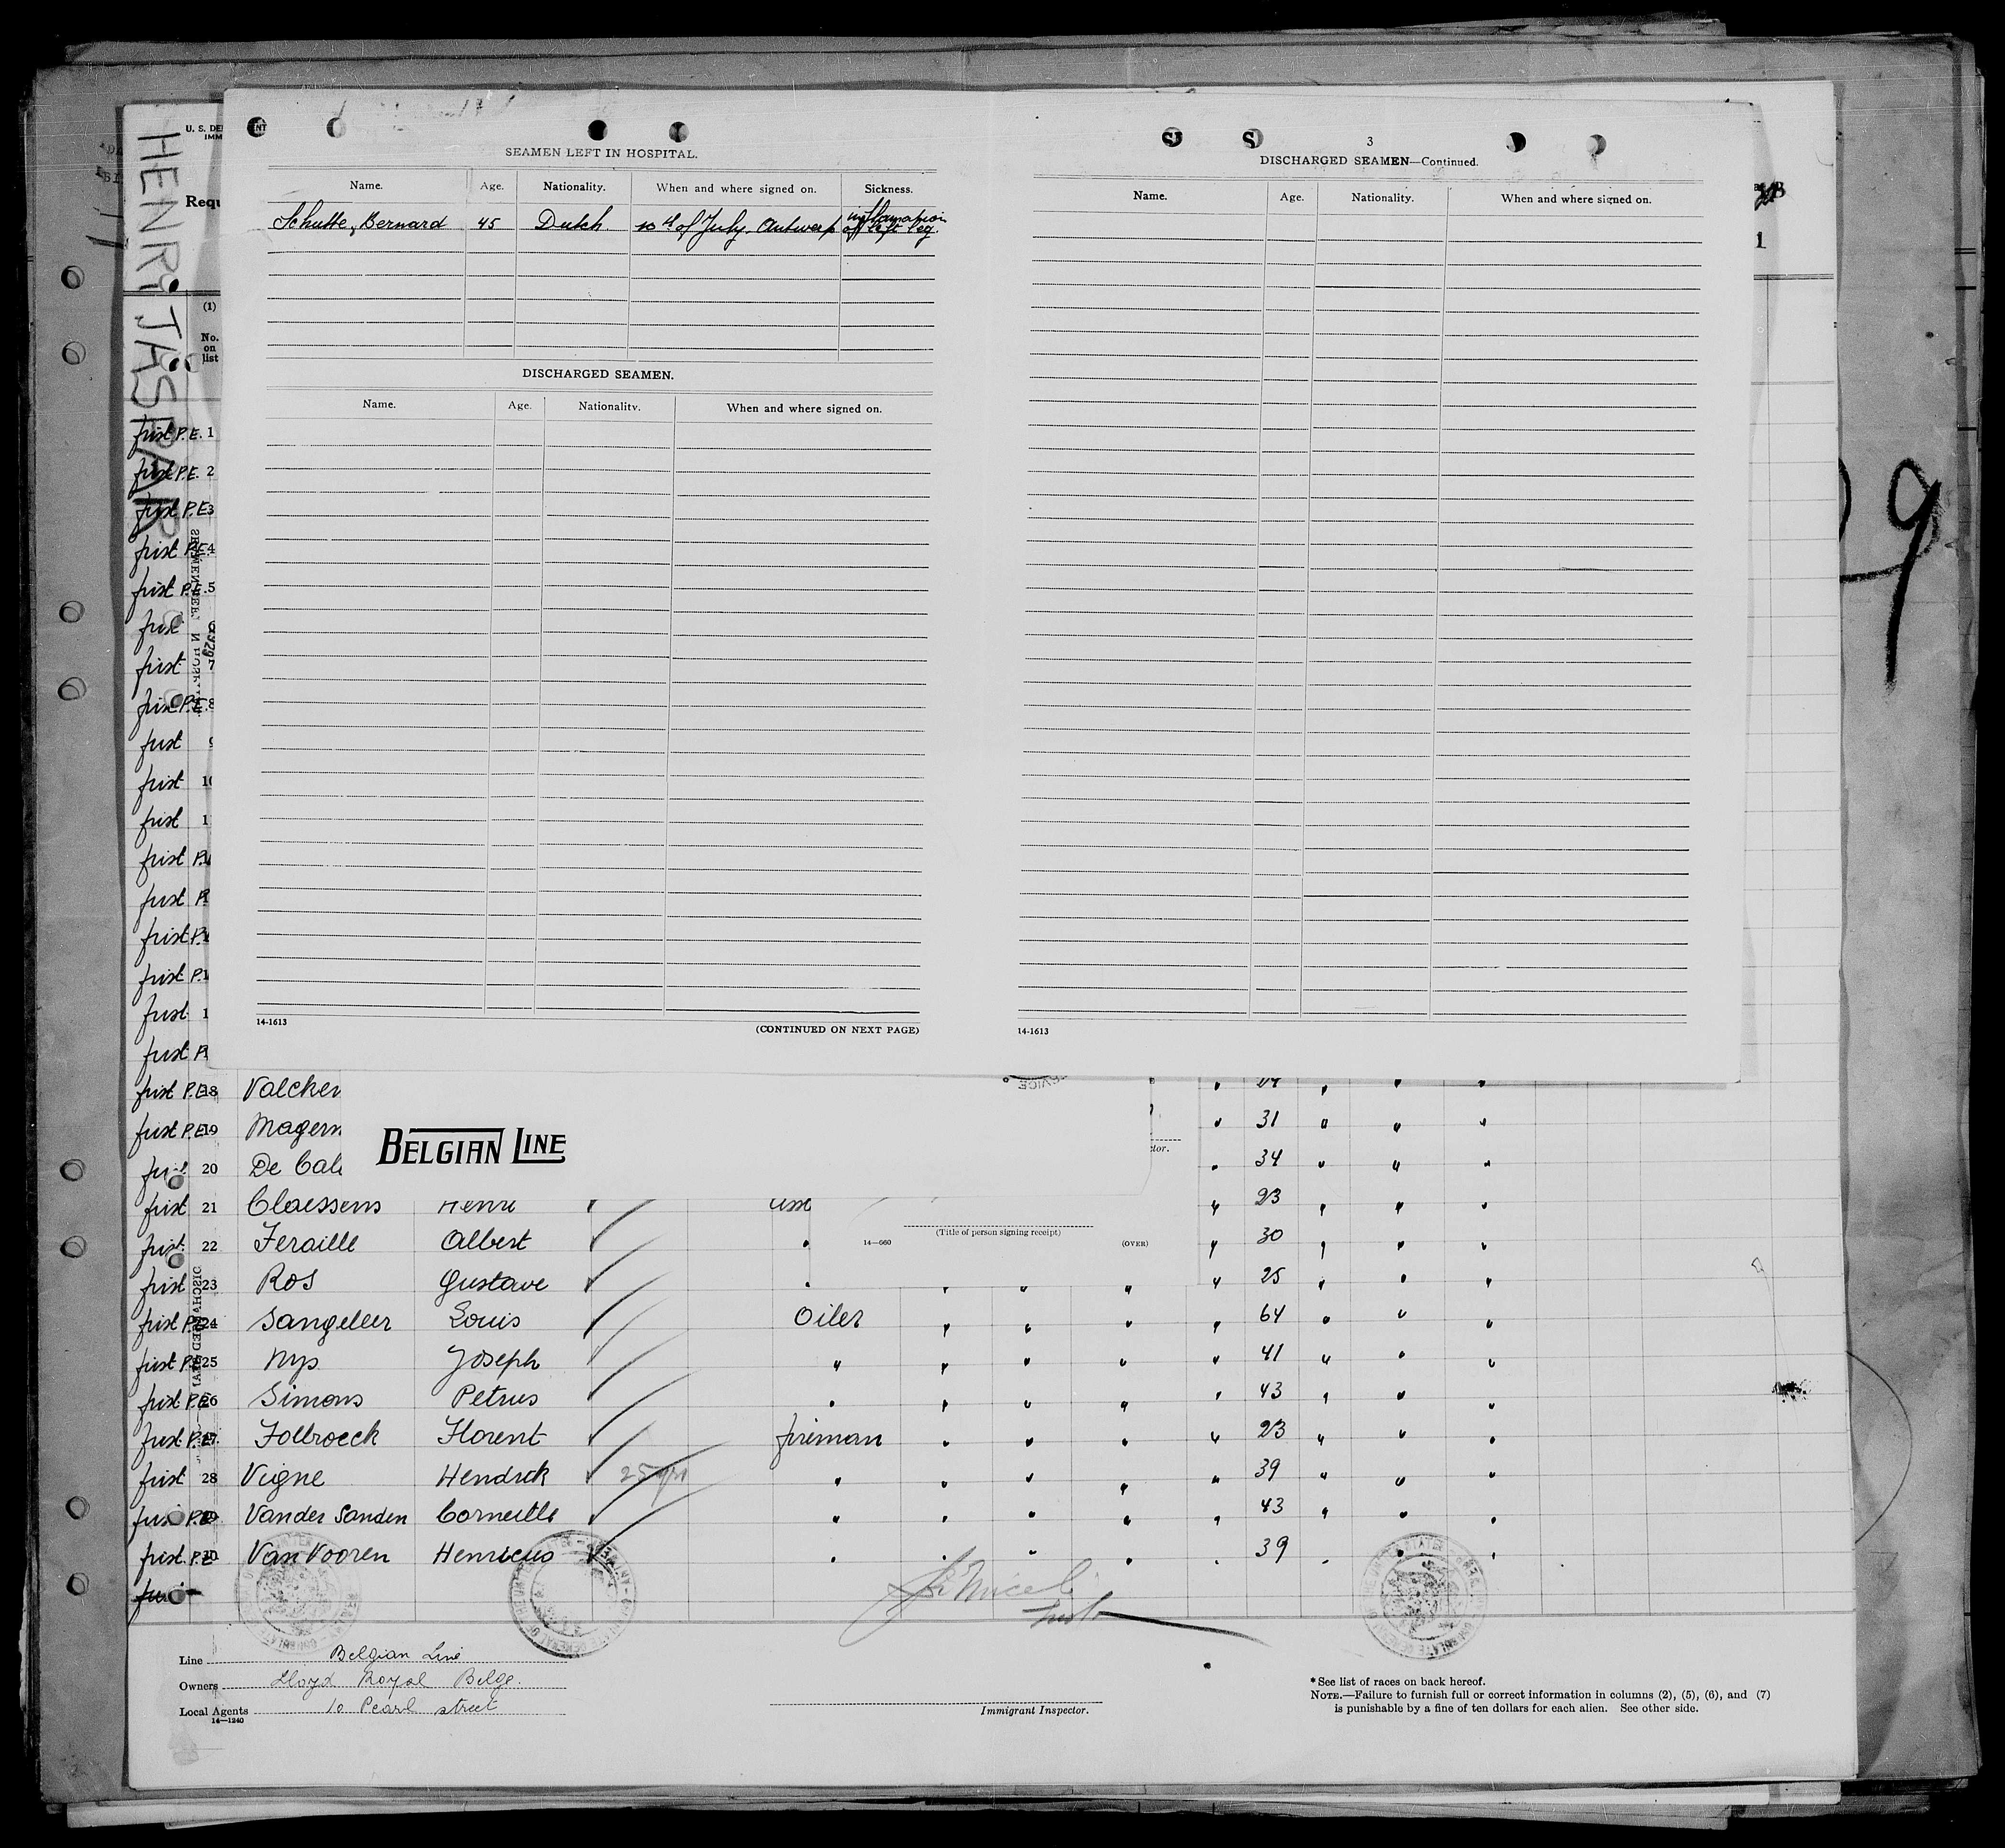 HENRI JASPAR
U. S. DE
IMM
Requ
(1)
No.
on
list
SEAMEN LEFT IN HOSPITAL.
Name. Age. Nationality. When and where signed on. Sickness.
Schutte, Bernard 45 Dutch 10th of July. Antwerp inflamation of left leg.
DISCHARGED SEAMEN.
Name. Age. Nationality. When and where signed on.
14-1613
(CONTINUED ON NEXT PAGE)
3
DISCHARGED SEAMEN—Continued.
Name. Age. Nationality. When and where signed on.
14-1613
9
first P.E. 1
first P.E. 2
first P.E. 3
first P.E. 4
first P.E. 5
first
first 7
first P.E. 8
first
first 10
first
first
first
first
first
first
first
first P.E. 18 Valcken 24
first P.E. 19 Magerm 31
20 De Cal 34
BELGIAN LINE
first 21 Claessens Henri asst 23
first 22 Feraille Albert " 30
first 23 Ros Gustave " 25
(Title of person signing receipt)
14—660
(OVER)
first P.E. 24 Sangeleer Louis Oiler " " " " 64 " " "
first P.E. 25 Nys Joseph " " " " " 41 " " "
first P.E. 26 Simons Petrus " " " " " 43 " " "
first P.E. 27 Folbroeck Florent fireman " " " " 23 " " "
first 28 Vigne Hendrik 25 yrs " " " " " 39 " " "
P.E. 29 Vander Sanden Corneille " " " " " 43 " " "
first P.E. 30 Van Vooren Henricus " " " " " 39 " " "
Line Belgian Line
Owners Lloyd Royal Belge.
Local Agents 10 Pearl street
14—1240
Immigrant Inspector.
* See list of races on back hereof.
NOTE.—Failure to furnish full or correct information in columns (2), (5), (6), and (7)
is punishable by a fine of ten dollars for each alien. See other side.